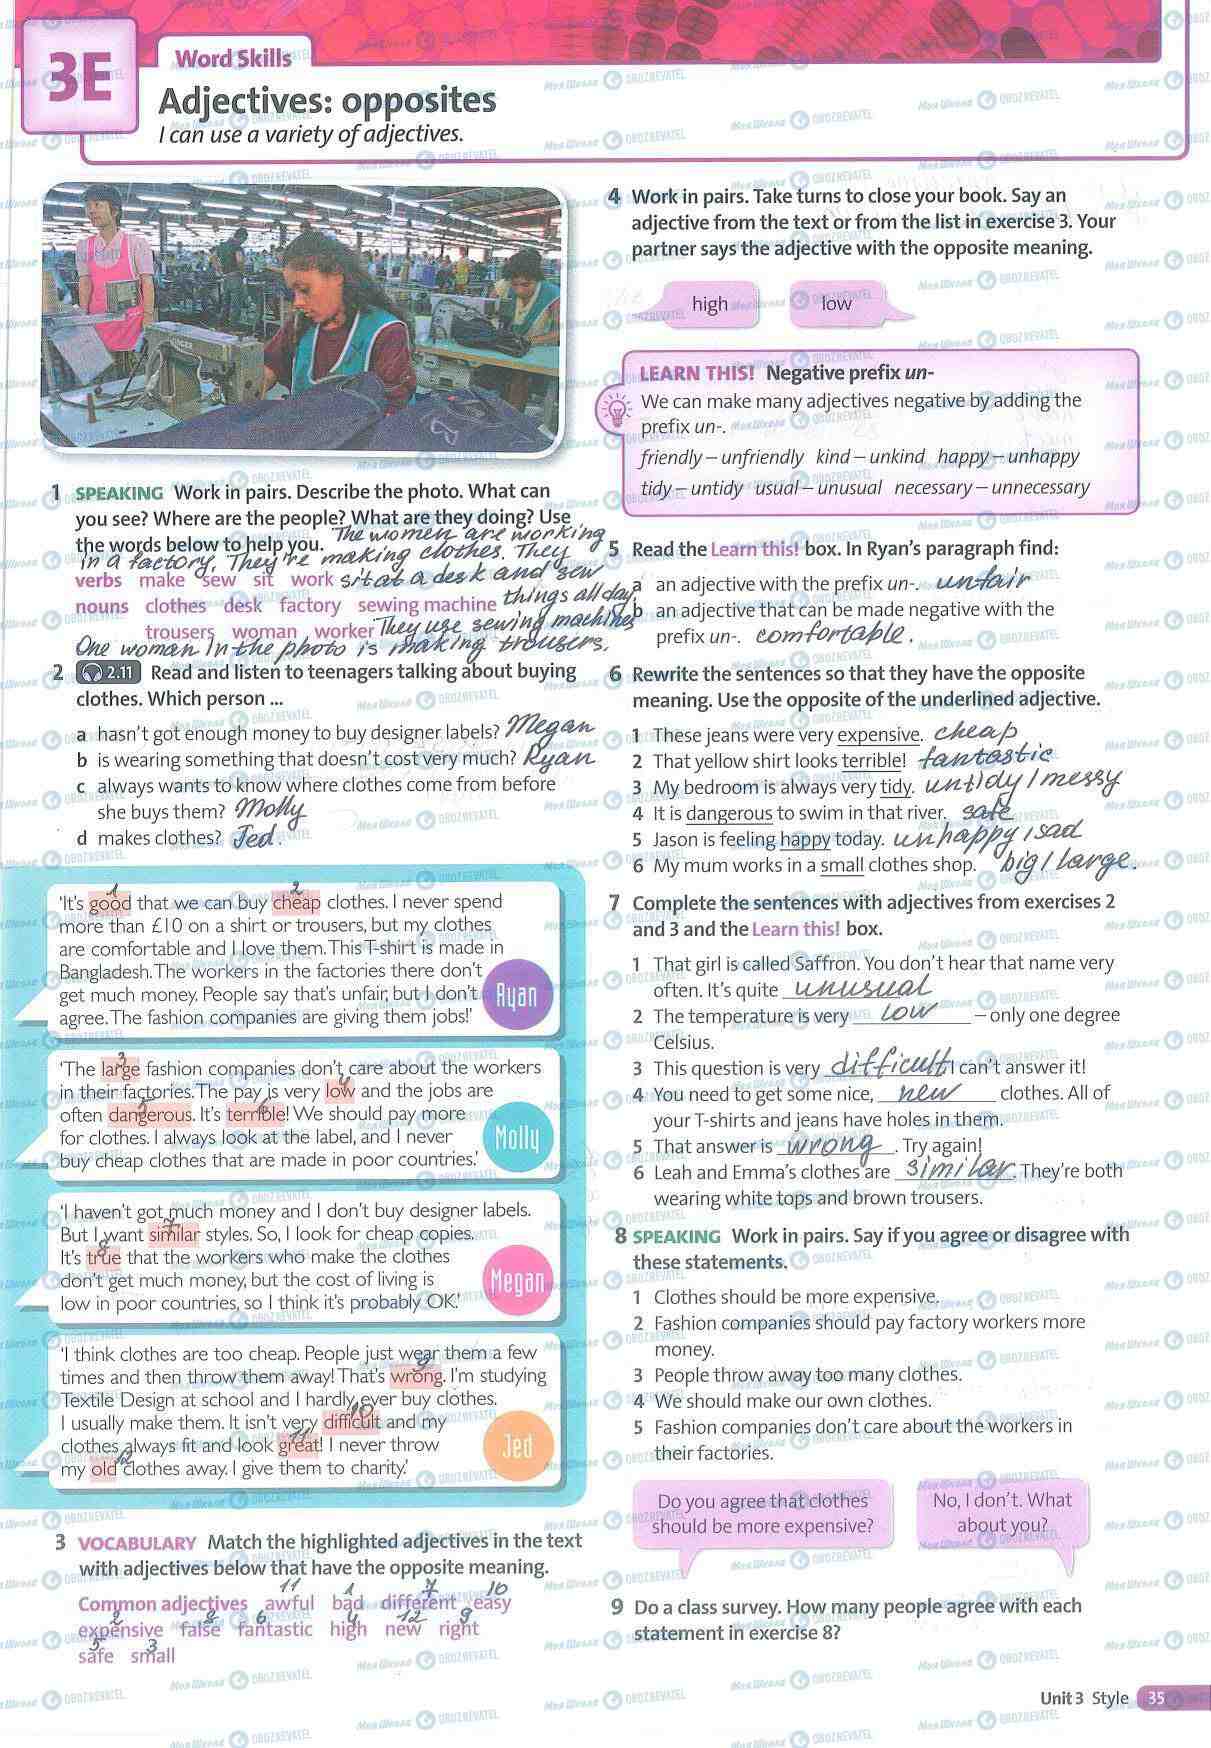 3E
Word Skills
Adjectives: opposites
I can use a variety of adjectives.
1 SPEAKING Work in pairs. Describe the photo. What can
you see? Where are the people? What are they doing? Use
the words below to help you. The women are working
in a factory. They're making clothes. They
verbs make sew sit work sit at a desk and sew
nouns clothes desk factory sewing machine things all day.
trousers woman worker They use sewing machines
One woman in the photo is making trousers.
2 2.11 Read and listen to teenagers talking about buying
clothes. Which person ...
a hasn't got enough money to buy designer labels? Megan
b is wearing something that doesn't cost very much? Ryan
c always wants to know where clothes come from before
she buys them? Molly
d makes clothes? Jed.
1 2
'It's good that we can buy cheap clothes. I never spend
more than £10 on a shirt or trousers, but my clothes
are comfortable and I love them. This T-shirt is made in
Bangladesh. The workers in the factories there don't
get much money. People say that's unfair, but I don't
agree. The fashion companies are giving them jobs!'
Ryan
3
'The large fashion companies don't care about the workers
in their factories. The pay is very low 4 and the jobs are
often dangerous 5. It's terrible 6! We should pay more
for clothes. I always look at the label, and I never
buy cheap clothes that are made in poor countries.'
Molly
'I haven't got much money and I don't buy designer labels.
But I want similar 7 styles. So, I look for cheap copies.
It's true 8 that the workers who make the clothes
don't get much money, but the cost of living is
low in poor countries, so I think it's probably OK.'
Megan
'I think clothes are too cheap. People just wear them a few
times and then throw them away! That's wrong 9. I'm studying
Textile Design at school and I hardly ever buy clothes.
I usually make them. It isn't very difficult 10 and my
clothes always fit and look great 11! I never throw
my old 12 clothes away. I give them to charity.'
Jed
3 VOCABULARY Match the highlighted adjectives in the text
with adjectives below that have the opposite meaning.
11 1 7 10
Common adjectives awful bad different easy
2 8 6 4 12 9
expensive false fantastic high new right
5 3
safe small
4 Work in pairs. Take turns to close your book. Say an
adjective from the text or from the list in exercise 3. Your
partner says the adjective with the opposite meaning.
high low
LEARN THIS! Negative prefix un-
We can make many adjectives negative by adding the
prefix un-.
friendly – unfriendly kind – unkind happy – unhappy
tidy – untidy usual – unusual necessary – unnecessary
5 Read the Learn this! box. In Ryan's paragraph find:
a an adjective with the prefix un-. unfair
b an adjective that can be made negative with the
prefix un-. comfortable.
6 Rewrite the sentences so that they have the opposite
meaning. Use the opposite of the underlined adjective.
1 These jeans were very expensive. cheap
2 That yellow shirt looks terrible! fantastic
3 My bedroom is always very tidy. untidy / messy
4 It is dangerous to swim in that river. safe
5 Jason is feeling happy today. unhappy / sad
6 My mum works in a small clothes shop. big / large.
7 Complete the sentences with adjectives from exercises 2
and 3 and the Learn this! box.
1 That girl is called Saffron. You don't hear that name very
often. It's quite unusual
2 The temperature is very low – only one degree
Celsius.
3 This question is very difficult I can't answer it!
4 You need to get some nice, new clothes. All of
your T-shirts and jeans have holes in them.
5 That answer is wrong. Try again!
6 Leah and Emma's clothes are similar. They're both
wearing white tops and brown trousers.
8 SPEAKING Work in pairs. Say if you agree or disagree with
these statements.
1 Clothes should be more expensive.
2 Fashion companies should pay factory workers more
money.
3 People throw away too many clothes.
4 We should make our own clothes.
5 Fashion companies don't care about the workers in
their factories.
Do you agree that clothes
should be more expensive?
No, I don't. What
about you?
9 Do a class survey. How many people agree with each
statement in exercise 8?
Unit 3 Style 35
Моя Школа OBOZREVATEL